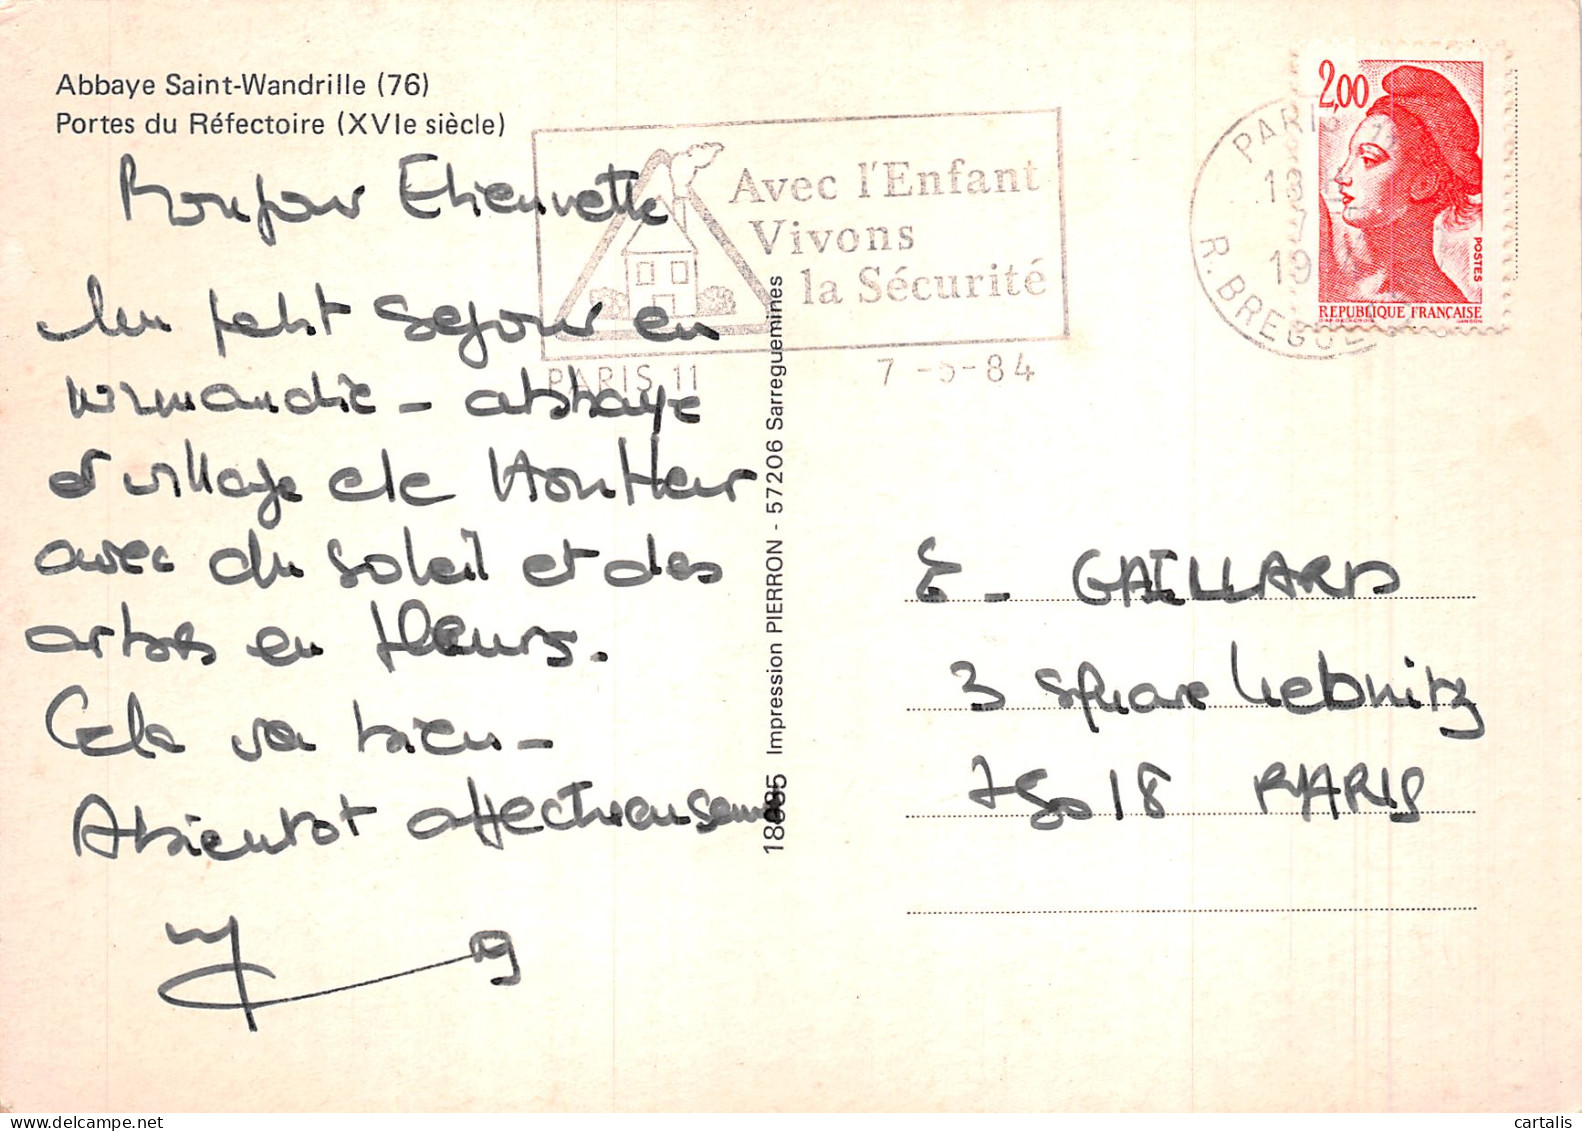 Abbaye Saint-Wandrille (76)
Portes du Réfectoire (XVIe siècle)
Bonjour Etiennette
Un petit sejour en
normandie - abbaye
et village de
avec du soleil et des
arbres en fleurs.
Cela va bien -
A bientot affectueusement
Avec l'Enfant
Vivons
la Sécurité
PARIS 11
7 -5-84
PARIS
18
7
19
R. BREGUET
2,00
POSTES
REPUBLIQUE FRANÇAISE
18685 Impression PIERRON - 57206 Sarreguemines
E - GAILLARD
3 square Liebnitz
75018 PARIS
cartalis